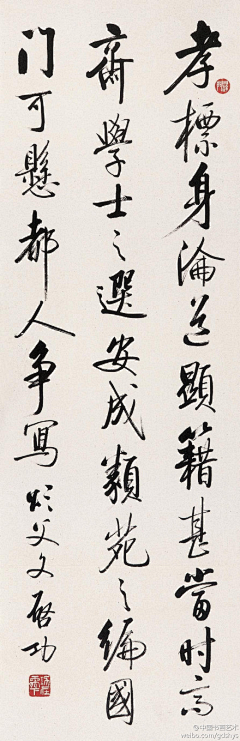 孝標身淪道顯籍甚當时高
齋學士之選安成類苑之編國
门可懸都人争寫 容父文 啓功
@中国书画艺术
weibo.com/gdshys